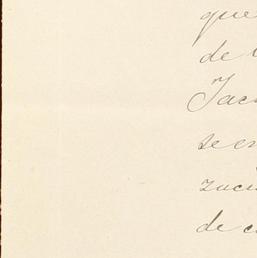 que
de
Jac
se en
zuci
de c